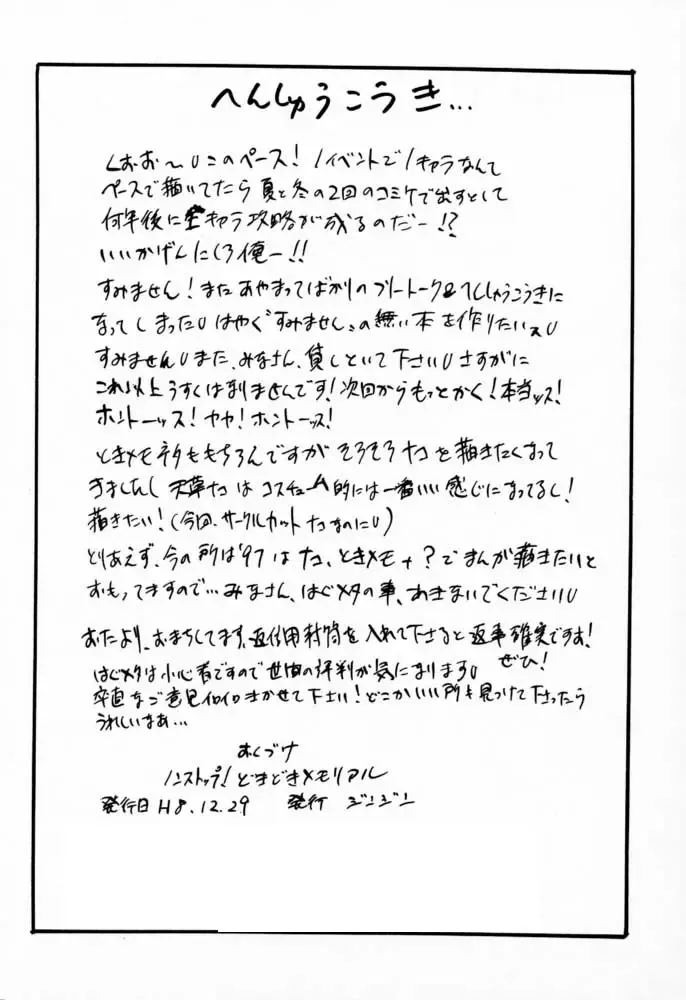 へんしゅうこうき…
くおお〜このペース! 1イベントで1キャラなんて
ペースで描いてたら夏と冬の2回のコミケで出すとして
何年後に全キャラ攻略が成るのだー!?
いいかげんにしろ俺ー!!
すみません!またあやまってばかりのフリートーク&へんしゅうこうきに
なってしまった はやく“すみません”の無い本を作りたいっス
すみません また、みなさん、貸しといて下さい さすがに
これ以上うすくはなりませんです!次回からもっとかく!本当ッス!
ホントーッス!ヤヤ!ホントーッス!
ときメモネタももちろんですがそろそろナコを描きたくなって
きましたし天草ナコはコスチューム的には一番いい感じになってるし!
描きたい!(今回、サークルカットナコなのに)
とりあえず、今の所は'97はナコ、ときメモ+?でまんが描きたいと
おもってますので…みなさん、はぐメタの事、あきないでください
おたより、おまちしてます、返信用封筒を入れて下さると返事確実ですよ!
ぜひ!
はぐメタは小心者ですので世間の評判が気になります
率直なご意見イロイロきかせて下さい!どこかいい所も見つけて下さったら
うれしいなあ…
おくづけ
ノンストップ!どきどきメモリアル
発行日 H8.12.29 発行 ジンジン